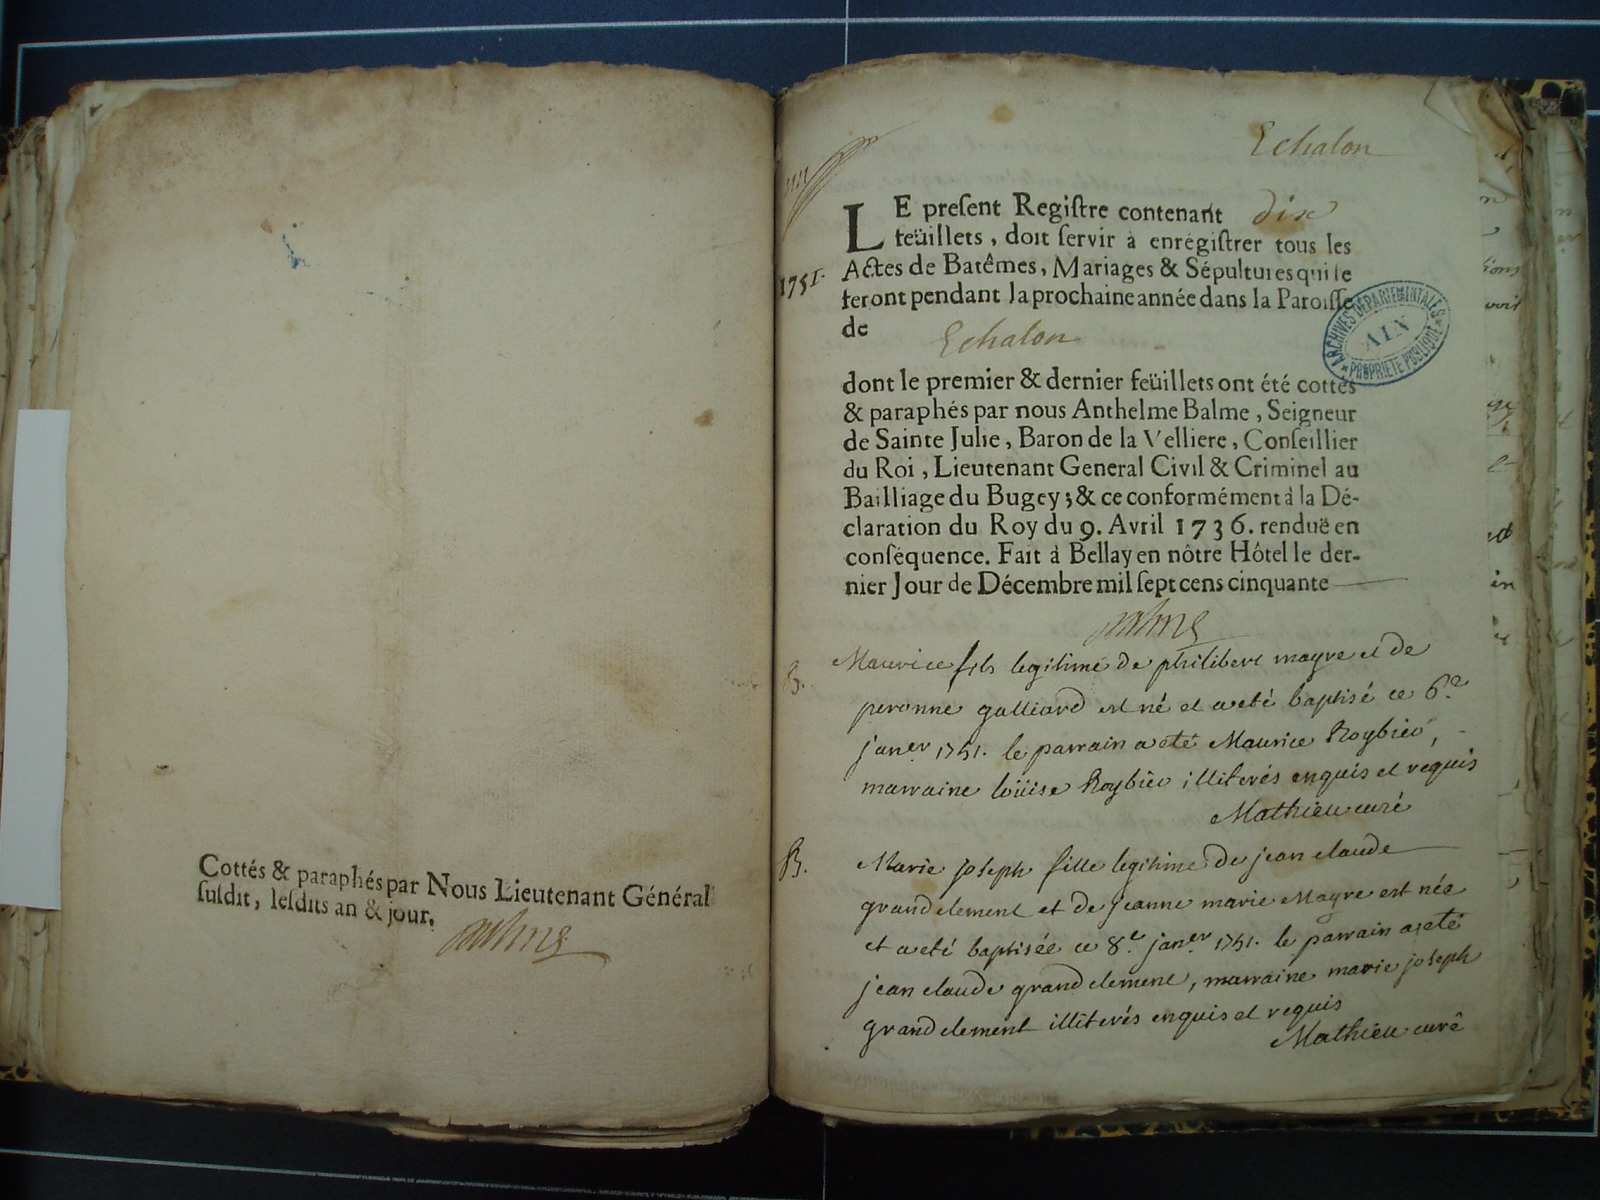 Cottés & paraphés par Nous Lieutenant Général
ſuſdit, leſdits an & jour.
Balme
Echalon
1751.
LE preſent Regiſtre contenant dix
feüillets, doit ſervir à enrégiſtrer tous les
Actes de Batêmes, Mariages & Sépultures qui ſe
feront pendant la prochaine année dans la Paroiſſe
de Echalon
ARCHIVES DÉPARTEMENTALES
AIN
PROPRIÉTÉ PUBLIQUE
dont le premier & dernier feüillets ont été cottés
& paraphés par nous Anthelme Balme, Seigneur
de Sainte Julie, Baron de la Velliere, Conſeillier
du Roi, Lieutenant General Civil & Criminel au
Bailliage du Bugey; & ce conformément à la Dé-
claration du Roy du 9. Avril 1736. renduë en
conſéquence. Fait à Bellay en nôtre Hôtel le der-
nier Jour de Décembre mil ſept cens cinquante
Balme
B. Maurice fils legitime de philibert mayre et de
peronne galliard est né et a eté baptisé ce 6.e
jan.er 1751. le parrain a eté Maurice Roybier,
marraine loüise Roybier illiterés enquis et requis
Mathieu curé
B. Marie joseph fille legitime de jean claude
grandclement et de jeanne marie Mayre est née
et a eté baptisée ce 8.e jan.er 1751. le parrain a eté
jean claude grandclement, marraine marie joseph
grandclement illiterés enquis et requis
Mathieu curé